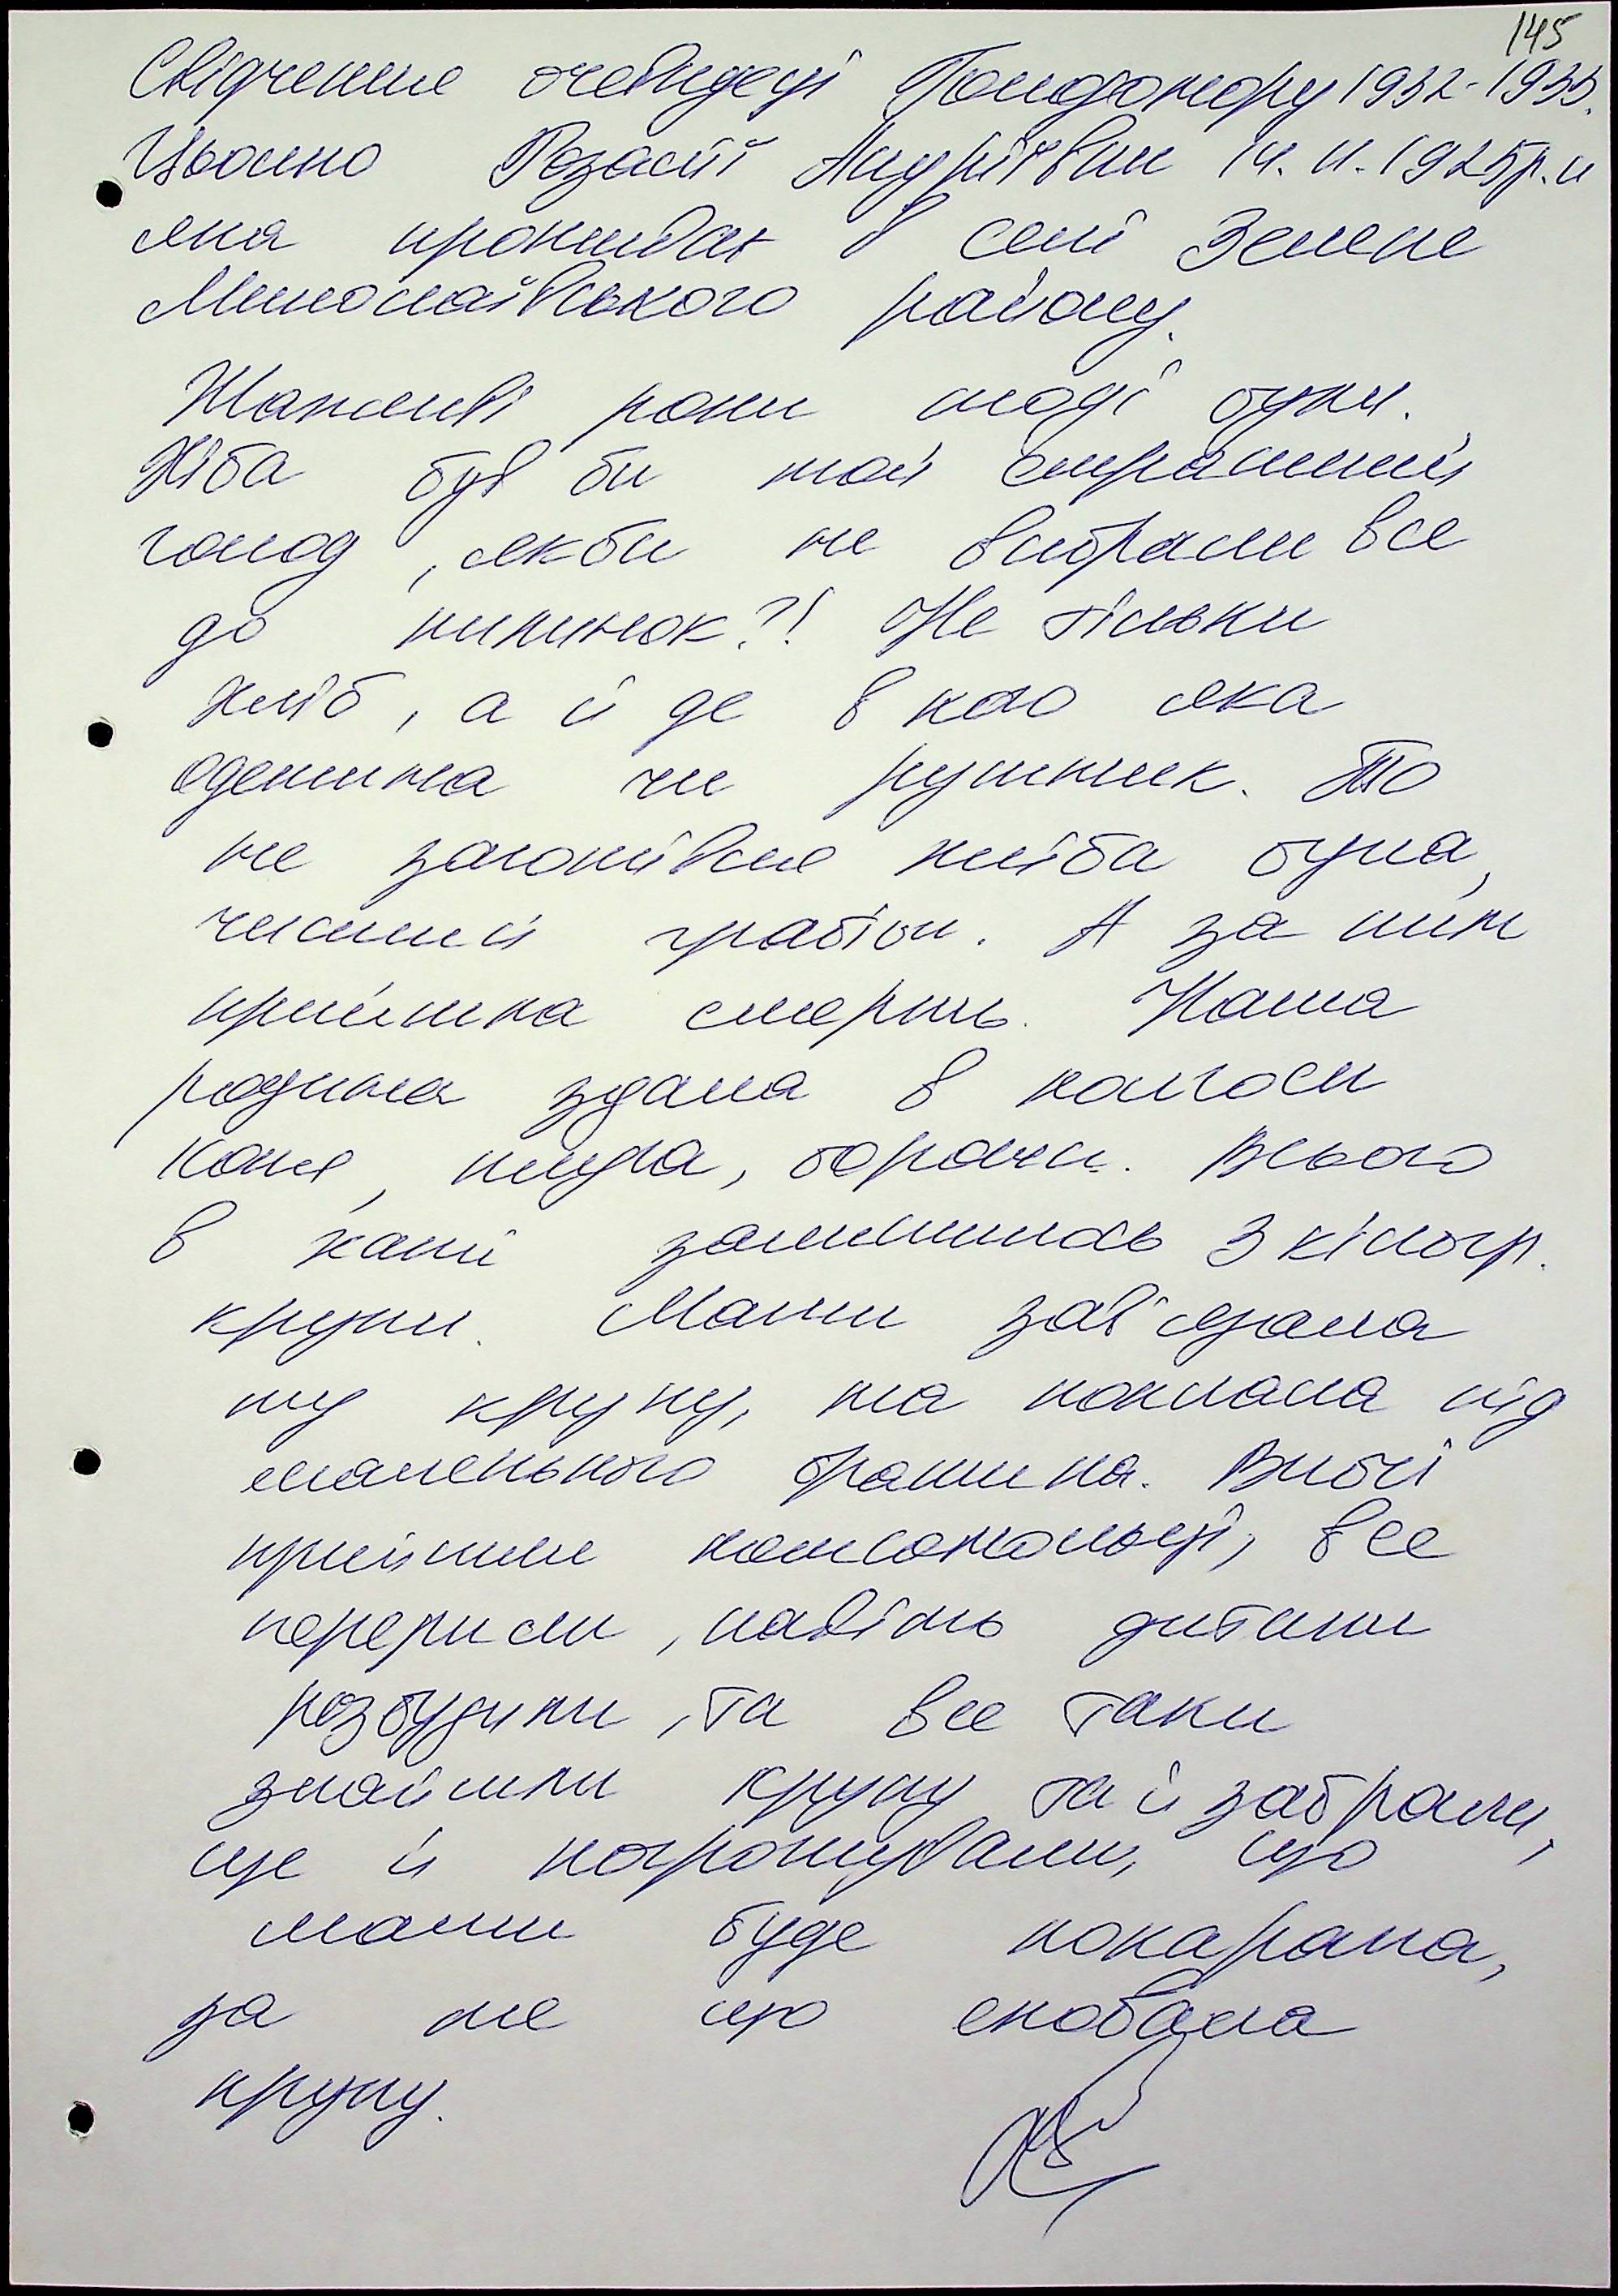 145
Свідчення очевидеці Голодомору 1932-1933.
Розалії Андріївни 14. 11. 1925р.н
яка проживає в селі Зелене
району.
Жахливі роки тоді були.
Хіба був би той страшний
голод, якби не вибрали все
до нитинок?! Не тільки
хліб, а й де в кого яка
одежина чи рушник. То
не заготівля хліба була,
чистий грабіж. А за ним
прийшла смерть. Наша
родина здала в колгосп
коня, плуга, борони. Всього
в хаті залишилось 3 кілогр.
крупи. Мати зав'язала
ту крупу, та поклала під
маленького братика. Вночі
прийшли комсомольці, все
перерили, навіть дитину
розбудили, та все таки
знайшли крупу та й забрали,
ще й погрожували, що
мати буде покарана,
за те що сховала
крупу.